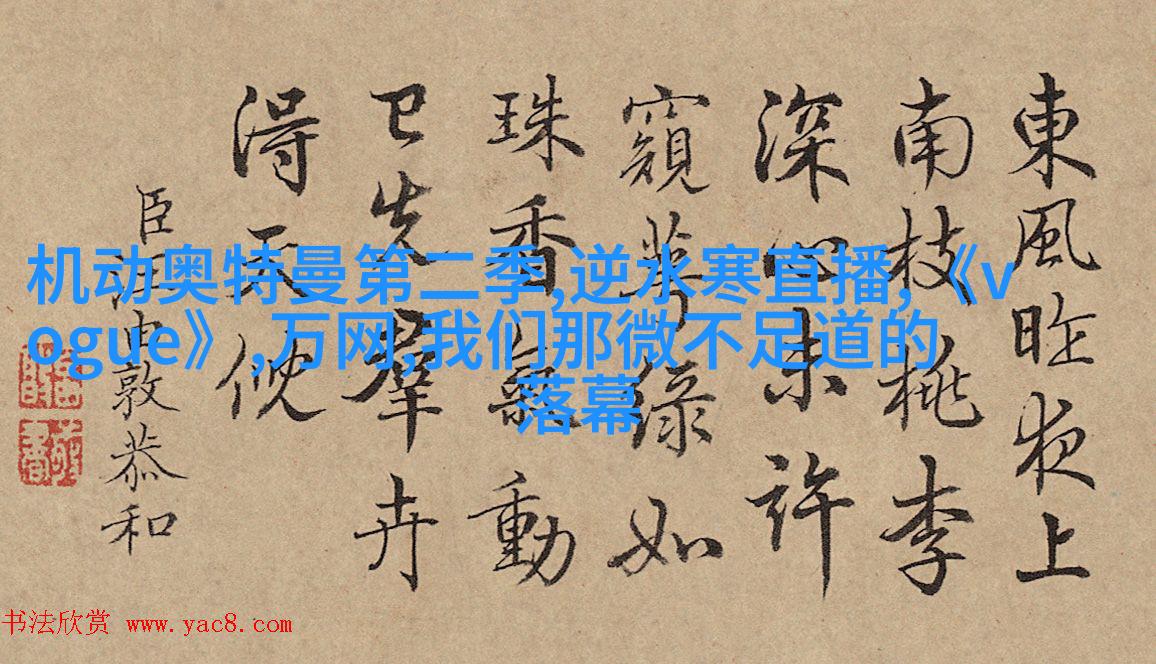 東風昨夜上
南枝桃李
深心未許
窺萼綠如
珠香氣動
已先羣卉
得天倪
臣汪由敦恭和
机动奥特曼第二季,逆水寒直播,《v
ogue》,万网,我们那微不足道的
落幕
书法欣赏 www.yac8.com